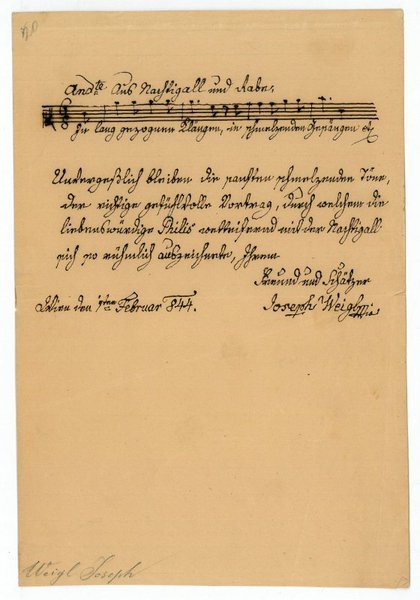 Andte Aus Nachtigall und Rabe,
In lang gezognen Klängen, in schmelzenden Gesängen etc
Unvergeßlich bleiben die sanften schmelzenden Töne,
der richtige gefühlvolle Vortrag, durch welchem die
liebenswürdige Philis wetteifernd mit der Nachtigall
sich so rühmlich auszeichnete, Ihrem
Freund und Schätzer
Wien den Februar 844. Joseph Weigl
Weigl Joseph